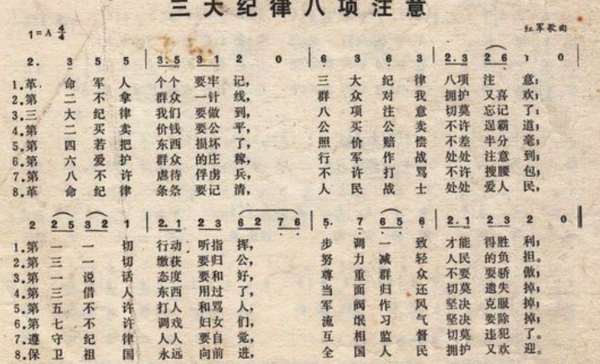 三大纪律八项注意
1=A 4/4 红军歌曲
2. 3 5 5 | 3.5 3 1 2 0 | 3 2 3 5 | 2.3 2 6 1 0 |
1.革命军人个个要牢记, 三大纪律八项注意:
2.第二不拿群众一针线, 群众对我拥护又喜欢;
3.三大纪律我们要做到, 八项注意切莫忘记了;
4.第二买卖价钱要公平, 公买公卖不许逞霸道;
5.第四若把东西损坏了, 照价赔偿不差半分毫;
6.第六爱护群众的庄稼, 行军作战处处注意到;
7.第八不许虐待俘虏兵, 不许打骂不许搜腰包;
8.革命纪律条条要记清, 人民战士处处爱人民;
2 3 2 1 | 2.1 2 3 6 2 7 6 | 5. 7 6 5 6 | 2.1 2 3 2 0
1.第一一切行动听指挥, 步调一致才能得胜利;
2.第三一切缴获要归公, 努力减轻人民的负担。
3.第一说话态度要和好, 尊重群众不要耍骄傲;
4.第三借人东西用过了, 当面归还切莫遗失掉;
5.第五不许打人和骂人, 军阀作风坚决克服掉;
6.第七不许调戏妇女们, 流氓习气坚决要除掉;
7.遵守纪律人人要自觉, 互相监督切莫违犯了;
8.保卫祖国永远向前进, 全国人民拥护又欢迎。